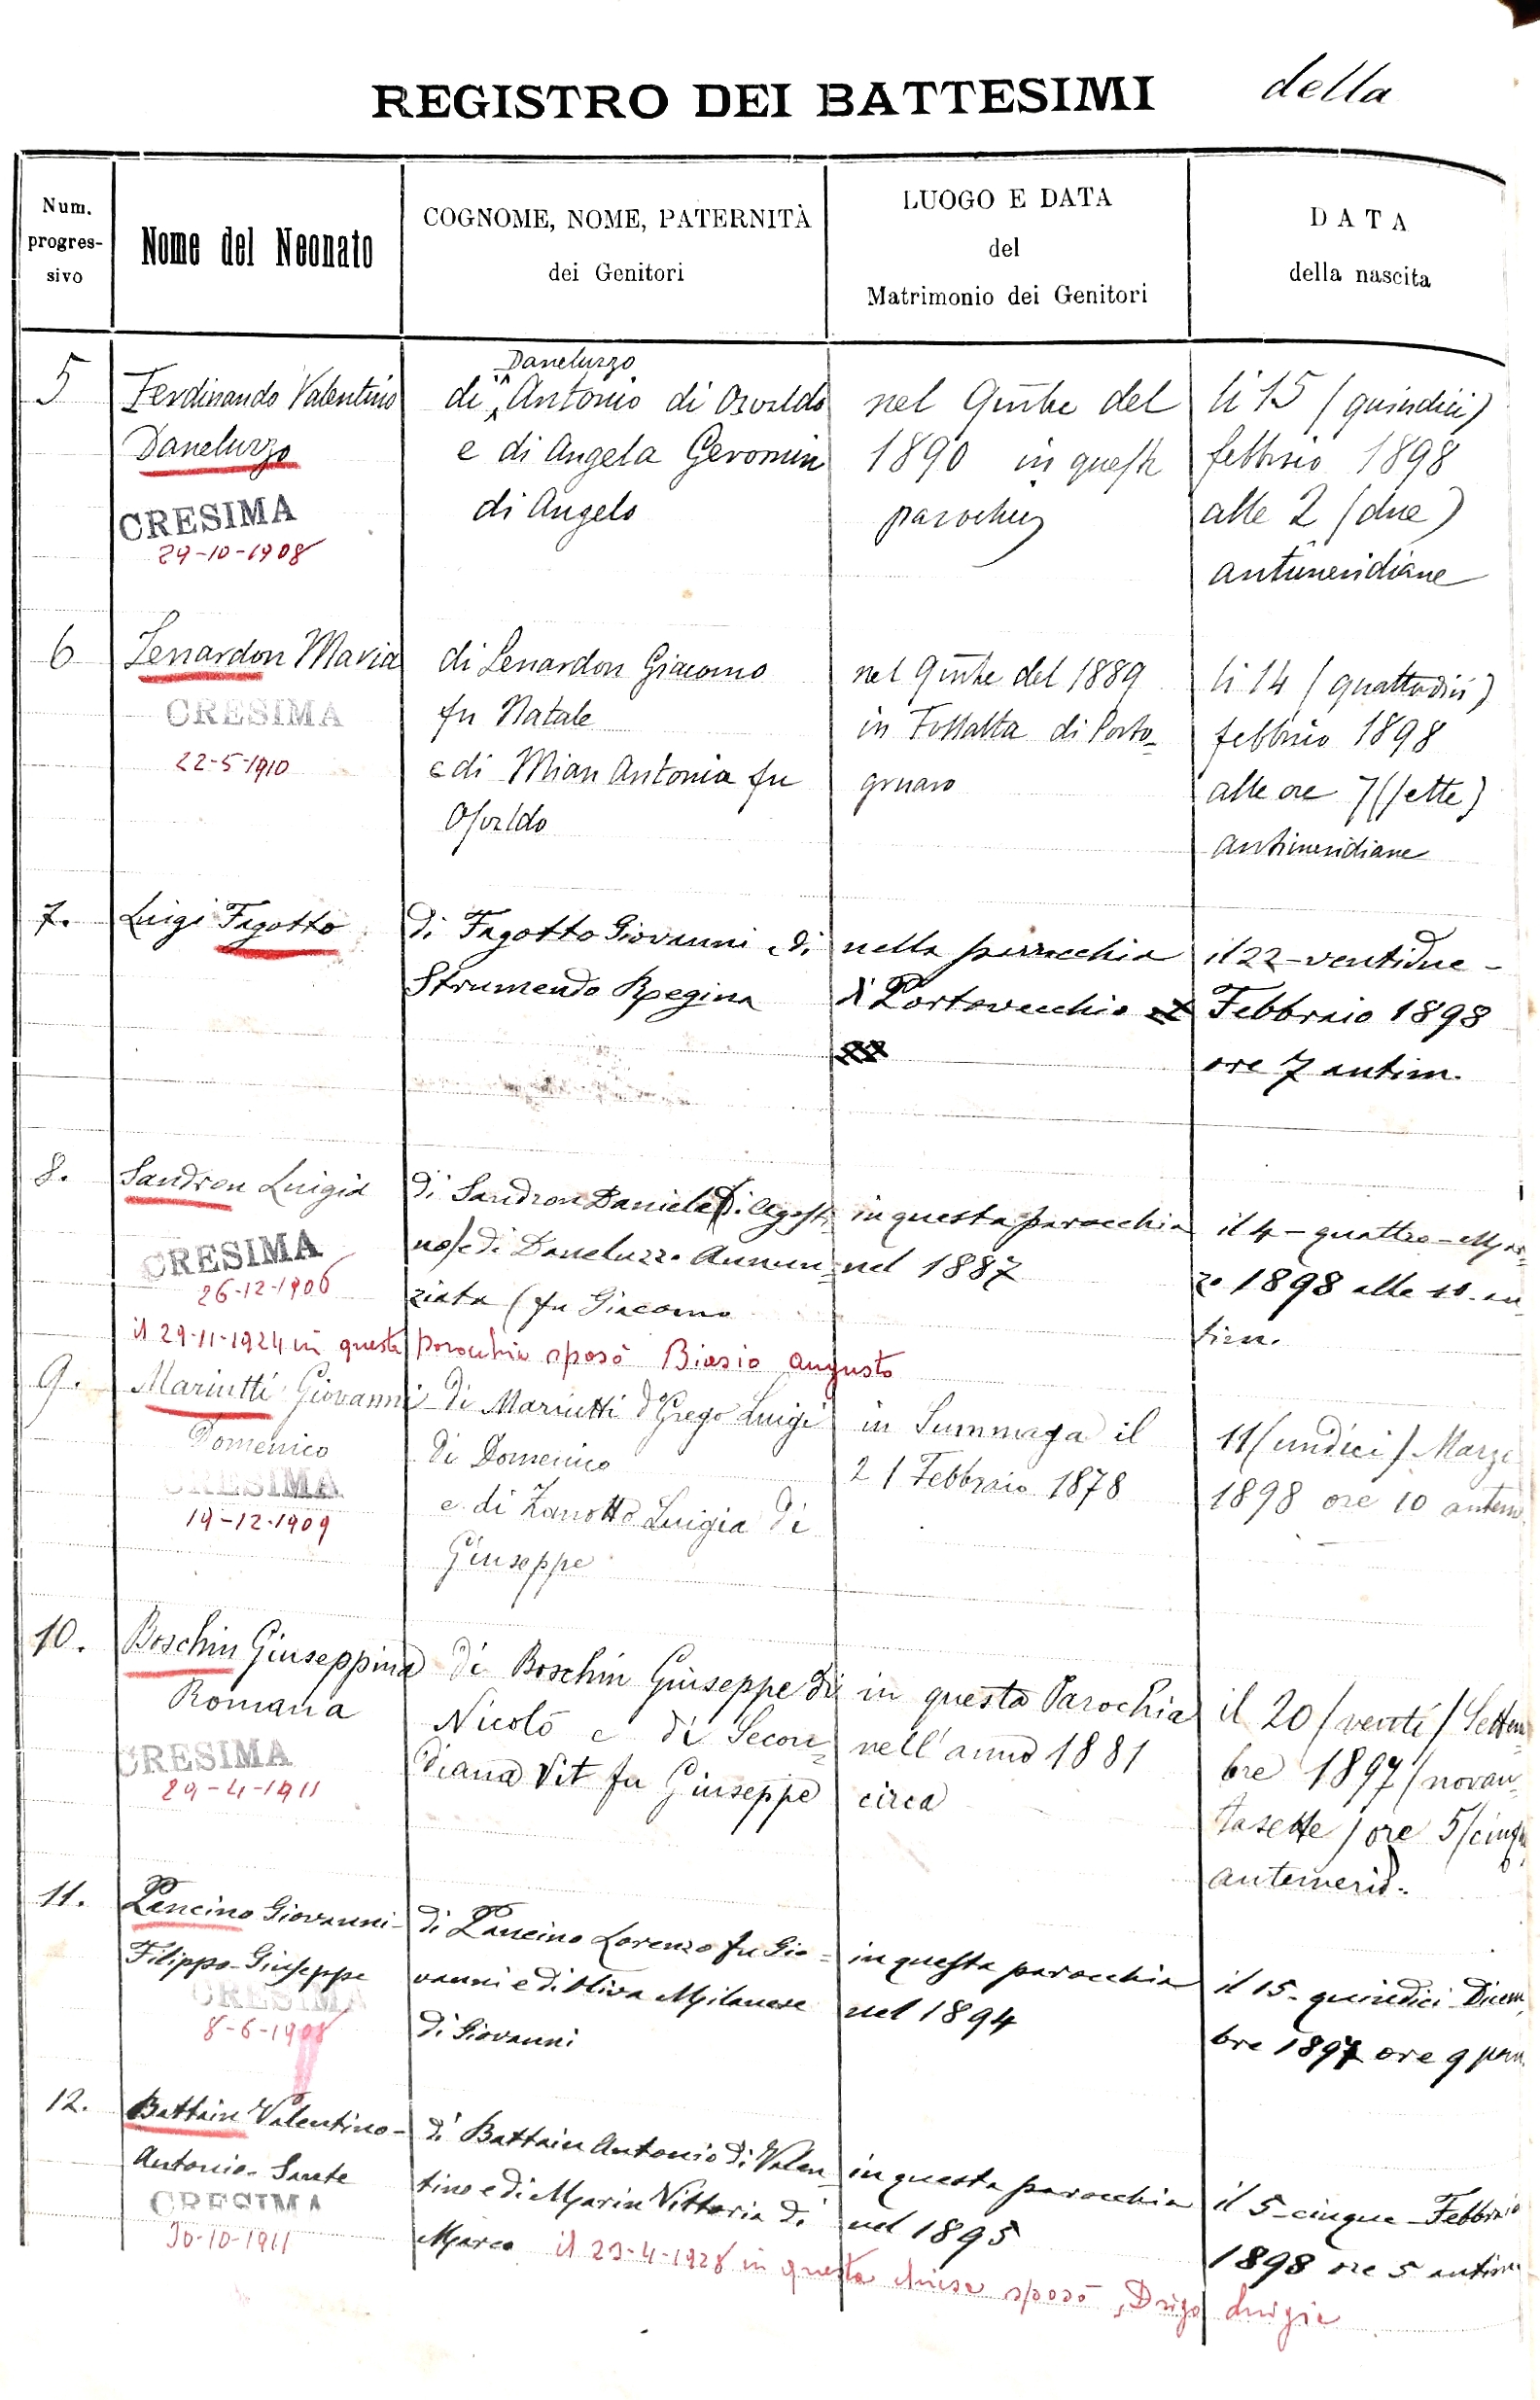 REGISTRO DEI BATTESIMI della
Num.
progres-
sivo
Nome del Neonato
COGNOME, NOME, PATERNITÀ
dei Genitori
LUOGO E DATA
del
Matrimonio dei Genitori
DATA
della nascita
5
Ferdinando Valentino
Daneluzzo
CRESIMA
29-10-1908
Daneluzzo
di Antonio di Osvaldo
e di Angela Geromin
di Angelo
nel 9mbre del
1890 in questa
parochia
li 15 (quindici)
febbraio 1898
alle 2 (due)
antimeridiane
6
Lenardon Maria
CRESIMA
22-5-1910
di Lenardon Giacomo
fu Natale
e di Mian Antonia fu
Osvaldo
nel 9mbre del 1889
in Fossalta di Porto-
gruaro
li 14 (quattordici)
febbraio 1898
alle ore 7 (sette)
antimeridiane
7.
Luigi Fagotto
di Fagotto Giovanni e di
Strumendo Regina
nella parrocchia
di Portovecchio
il 22-ventidue-
Febbraio 1898
ore 7 antim.
8.
Sandron Luigia
CRESIMA
26-12-1906
di Sandron Daniele (di Agosti
no) e di Daneluzzo Annun=
ziata (fu Giacomo
in questa parocchia
nel 1887
il 4-quattro-Mar-
zo 1898 alle 10. an
tim.
il 29-11-1924 in questa parochia sposò Biasio Augusto
9.
Mariutti Giovanni
Domenico
CRESIMA
19-12-1909
di Mariutti dº Grego Luigi
di Domenico
e di Zanotto Luigia di
Giuseppe
in Summaga il
21 Febbraio 1878
11 (undici) Marzo
1898 ore 10 antem.
10.
Boschin Giuseppina
Romana
CRESIMA
29-4-1911
di Boschin Giuseppe di
Nicolò e di Secon=
diana Vit fu Giuseppe
in questa Parochia
nell'anno 1881
circa
il 20 (venti) Settem=
bre 1897 (novan=
tasette) ore 5 (cinque
antemerid.
11.
Pancino Giovanni-
Filippo-Giuseppe
CRESIMA
8-6-1908
di Pancino Lorenzo fu Gio=
vanni e di Oliva Milanese
di Giovanni
in questa parocchia
nel 1894
il 15-quindici Dicem
bre 1897 ore 9 pom.
12.
Battain Valentino-
Antonio-Sante
CRESIMA
30-10-1911
di Battain Antonio di Valen
tino e di Marin Vittoria di
Marco
in questa parocchia
nel 1895
il 5-cinque-Febbraio
1898 ore 5 antim.
il 23-4-1928 in questa chiesa sposò Drigo Luigia